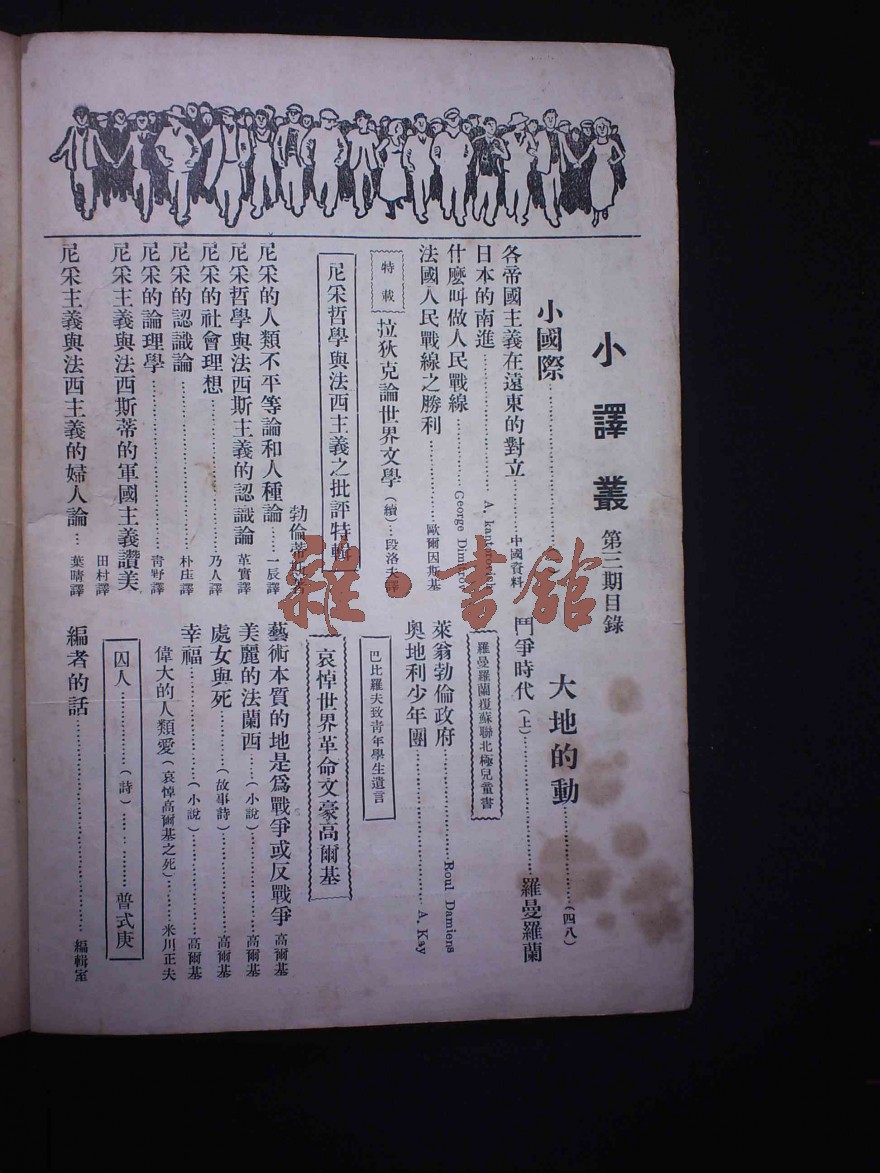 小譯叢 第三期目錄
小國際
各帝國主義在遠東的對立……中國資料
日本的南進……A.
什麼叫做人民戰線……George
法國人民戰線之勝利……歐爾因斯基
特載 拉狄克論世界文學(續)…段洛夫譯
尼采哲學與法西主義之批評特輯
勃倫蒂
尼采的人類不平等論和人種論……一辰譯
尼采哲學與法西斯主義的認識論 革實譯
尼采的社會理想……乃人譯
尼采的認識論……朴庄譯
尼采的論理學……青野譯
尼采主義與法西斯蒂的軍國主義讚美 田村譯
尼采主義與法西主義的婦人論…葉晴譯
大地的動……(四八)
鬥爭時代(上)……羅曼羅蘭
羅曼羅蘭覆蘇聯北極兒童書
萊翁勃倫政府……Roul Damiens
奧地利少年團……A. Kay
巴比羅夫致青年學生遺言
哀悼世界革命文豪高爾基
藝術本質的地是爲戰爭或反戰爭 高爾基
美麗的法蘭西……(小說)……高爾基
處女與死……(故事詩)……高爾基
幸福……(小說)……高爾基
偉大的人類愛(哀悼高爾基之死)……米川正夫
囚人……(詩)……普式庚
編者的話……編輯室
雜·書館